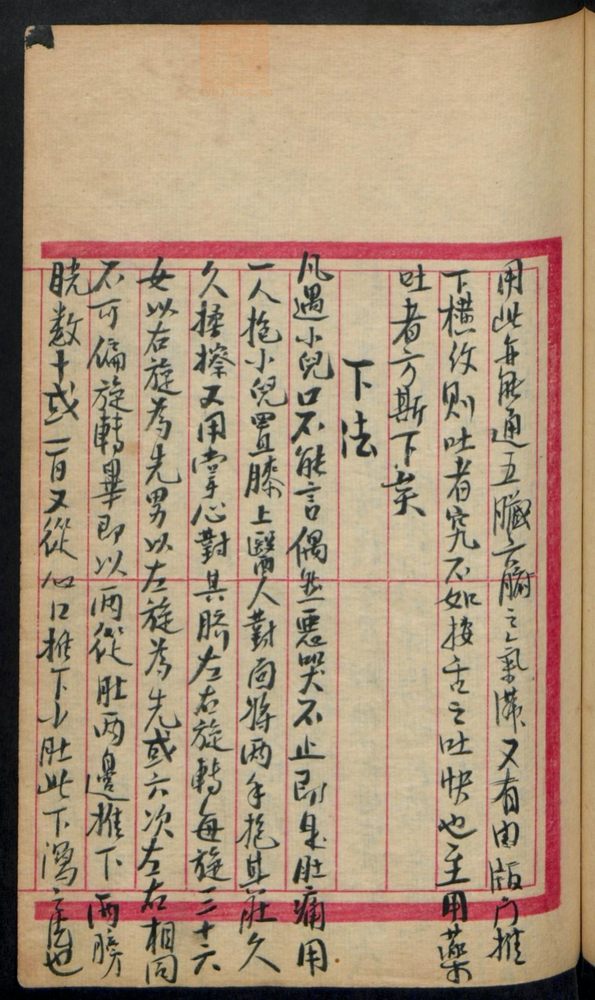 用此每能通五臟六腑之氣滯又有由版门推
下橫紋则吐者究不如按舌之吐快也至用藥
吐者方斯下矣
下法
凡遇小兒口不能言偶然惡哭不止即是肚痛用
一人抱小兒置膝上醫人對面將两手抱其肚久
久揉擦又用掌心對其臍左右旋轉每旋三十六
女以右旋為先男以左旋為先或六次左右相同
不可偏旋轉畢即以两從肚两邊推下两膀
朓数十或一百又從心口推下少肚此下瀉之法也